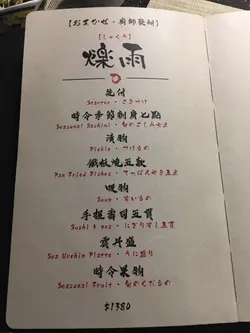 【おまかせ・廚師發辦】
【しゃくう】
爍雨
先付
Starter・さきづけ
時令季節刺身三款
Seasonal Sashimi・
漬物
Pickle・つけもの
鐵板燒五款
Pan Fried Dishes・てっぱんやき五点
吸物
Soup・すいもの
手握壽司五貫
Sushi 5 pcs・にぎりずし五貫
雲丹盛
Sea Urchin Platte・うに盛り
時令果物
Seasonal Fruit・
$1380